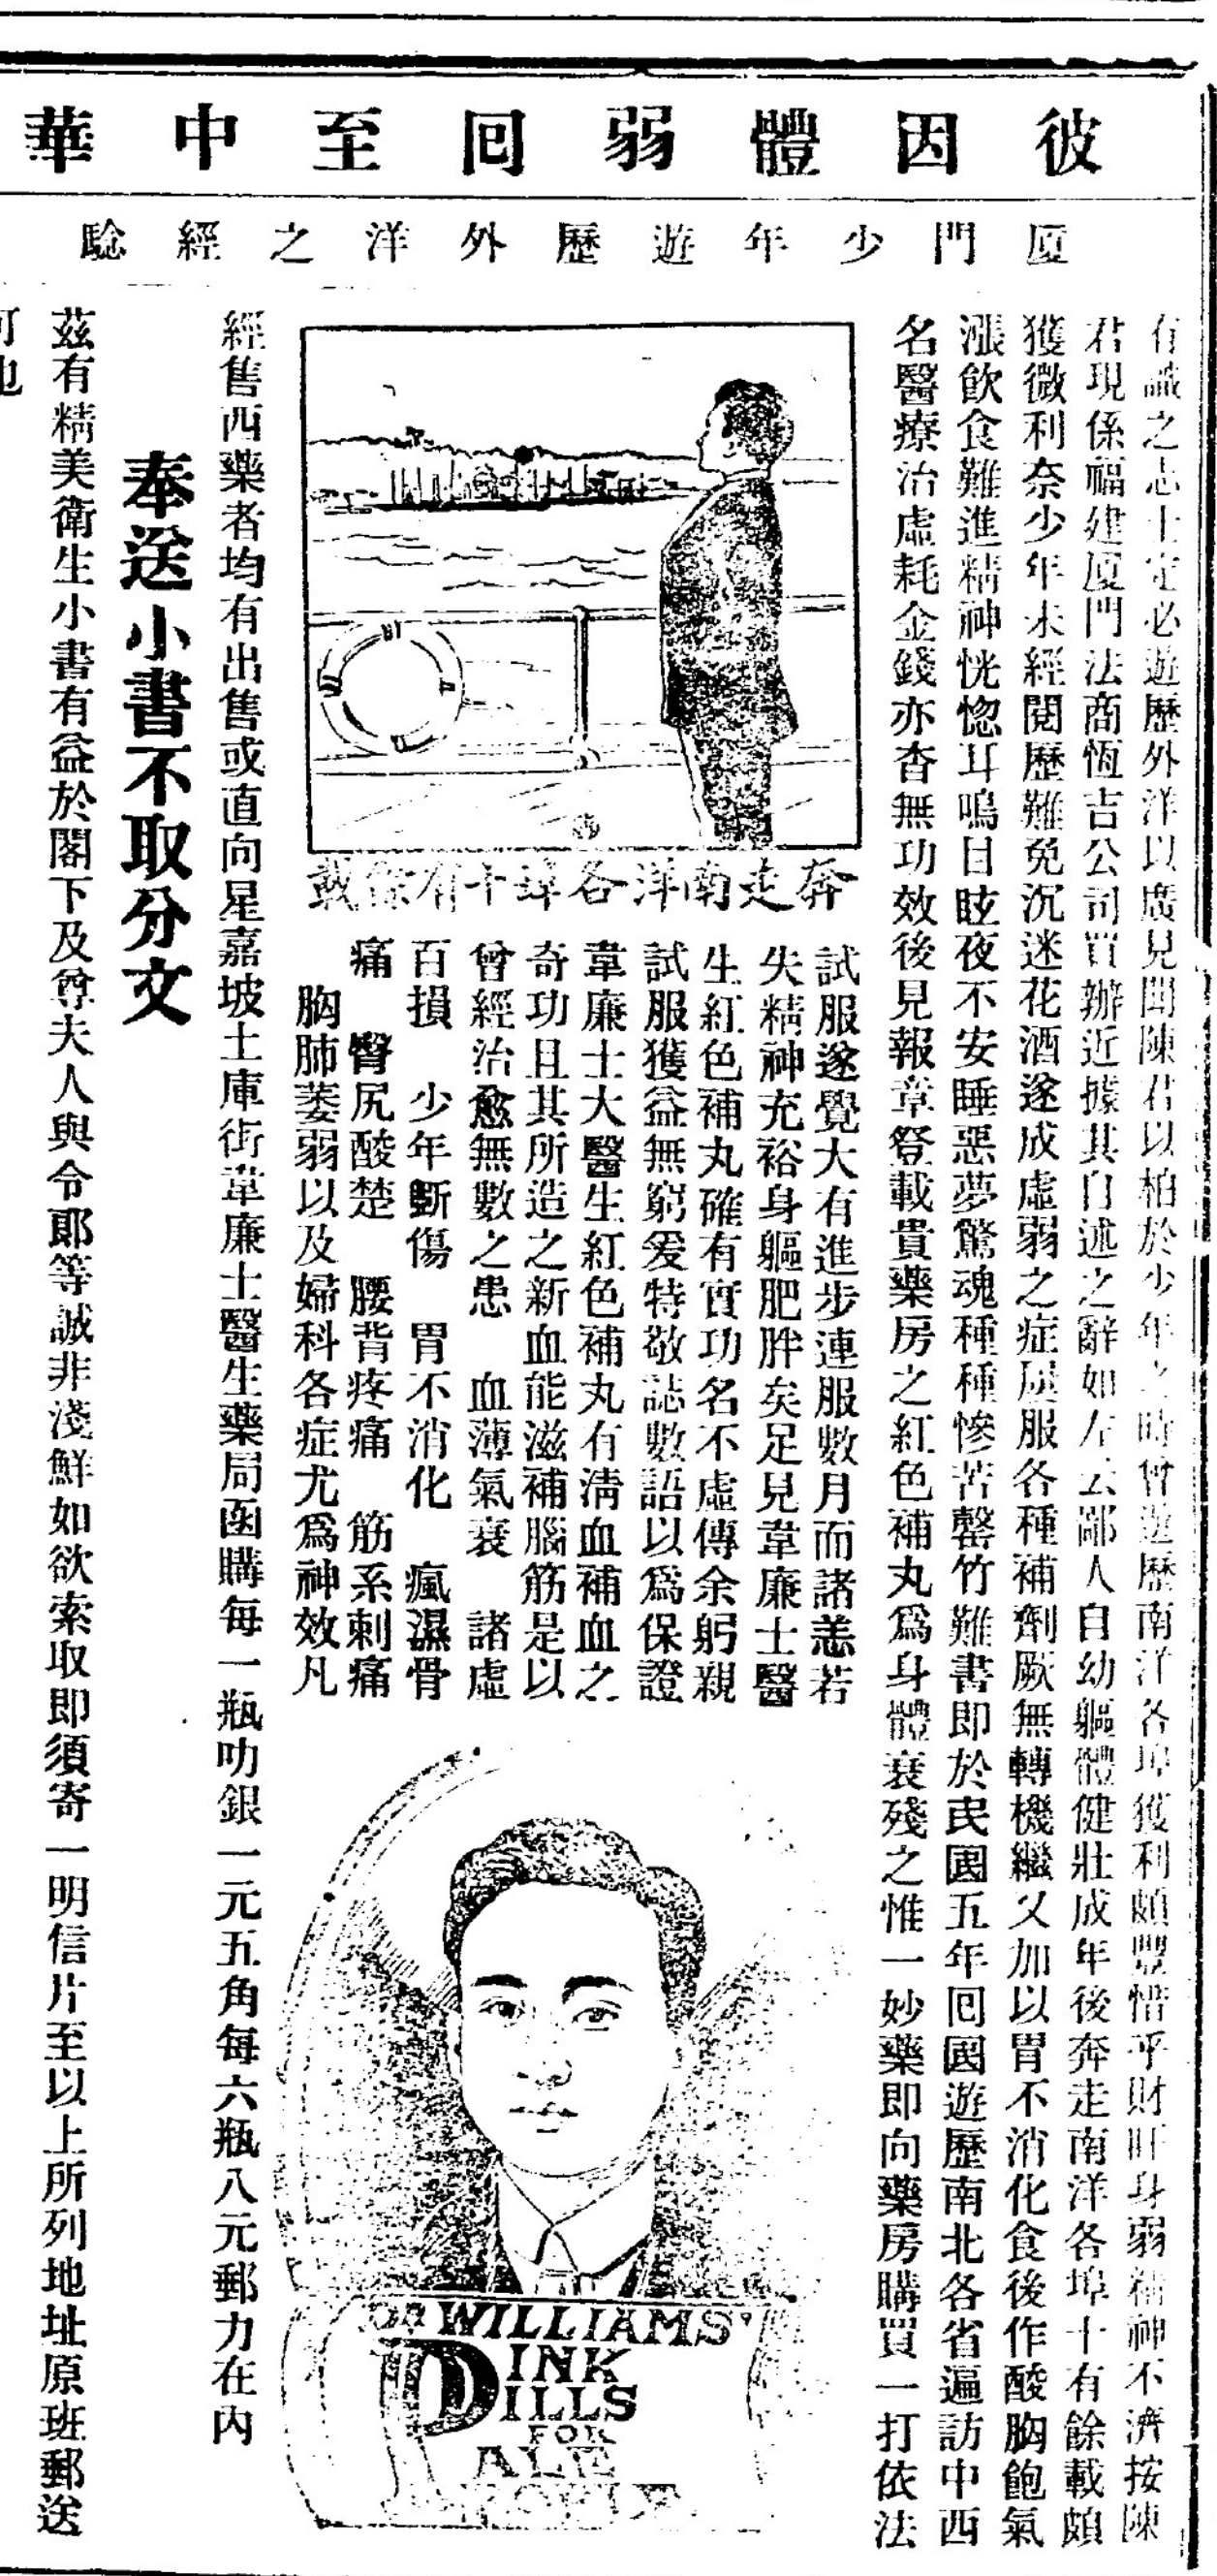 彼因體弱回至中華
厦門少年遊歷外洋之經驗
有識之志士定必遊歷外洋以廣見聞陳君以柏於少年之時曾遊歷南洋各埠獲利頗豐惜乎財旺身弱精神不濟按陳
君現係福建厦門法商恆吉公司買辦近據其自述之辭如左云鄙人自幼軀體健壯成年後奔走南洋各埠十有餘載頗
獲微利奈少年未經閱歷難免沉迷花酒遂成虛弱之症屢服各種補劑厥無轉機繼又加以胃不消化食後作酸胸飽氣
漲飲食難進精神恍惚耳鳴目眩夜不安睡惡夢驚魂種種慘苦罄竹難書即於民國五年回國遊歷南北各省遍訪中西
名醫療治虛耗金錢亦杳無功效後見報章登載貴藥房之紅色補丸為身體衰殘之惟一妙藥即向藥房購買一打依法
奔走南洋各埠十有餘載
試服遂覺大有進步連服數月而諸恙若
失精神充裕身軀肥胖矣足見韋廉士醫
生紅色補丸確有實功名不虛傳余躬親
試服獲益無窮爰特敬誌數語以為保證
韋廉士大醫生紅色補丸有清血補血之
奇功且其所造之新血能滋補腦筋是以
曾經治愈無數之患 血薄氣衰 諸虛
百損 少年斲傷 胃不消化 瘋濕骨
痛 臀尻酸楚 腰背疼痛 筋系刺痛
胸肺萎弱以及婦科各症尤為神效凡
DR WILLIAMS'
PINK
PILLS
FOR
PALE
PEOPLE
經售西藥者均有出售或直向星嘉坡土庫街韋廉士醫生藥局函購每一瓶叻銀一元五角每六瓶八元郵力在內
奉送小書不取分文
茲有精美衛生小書有益於閣下及尊夫人與令郎等誠非淺鮮如欲索取即須寄一明信片至以上所列地址原班郵送
可也